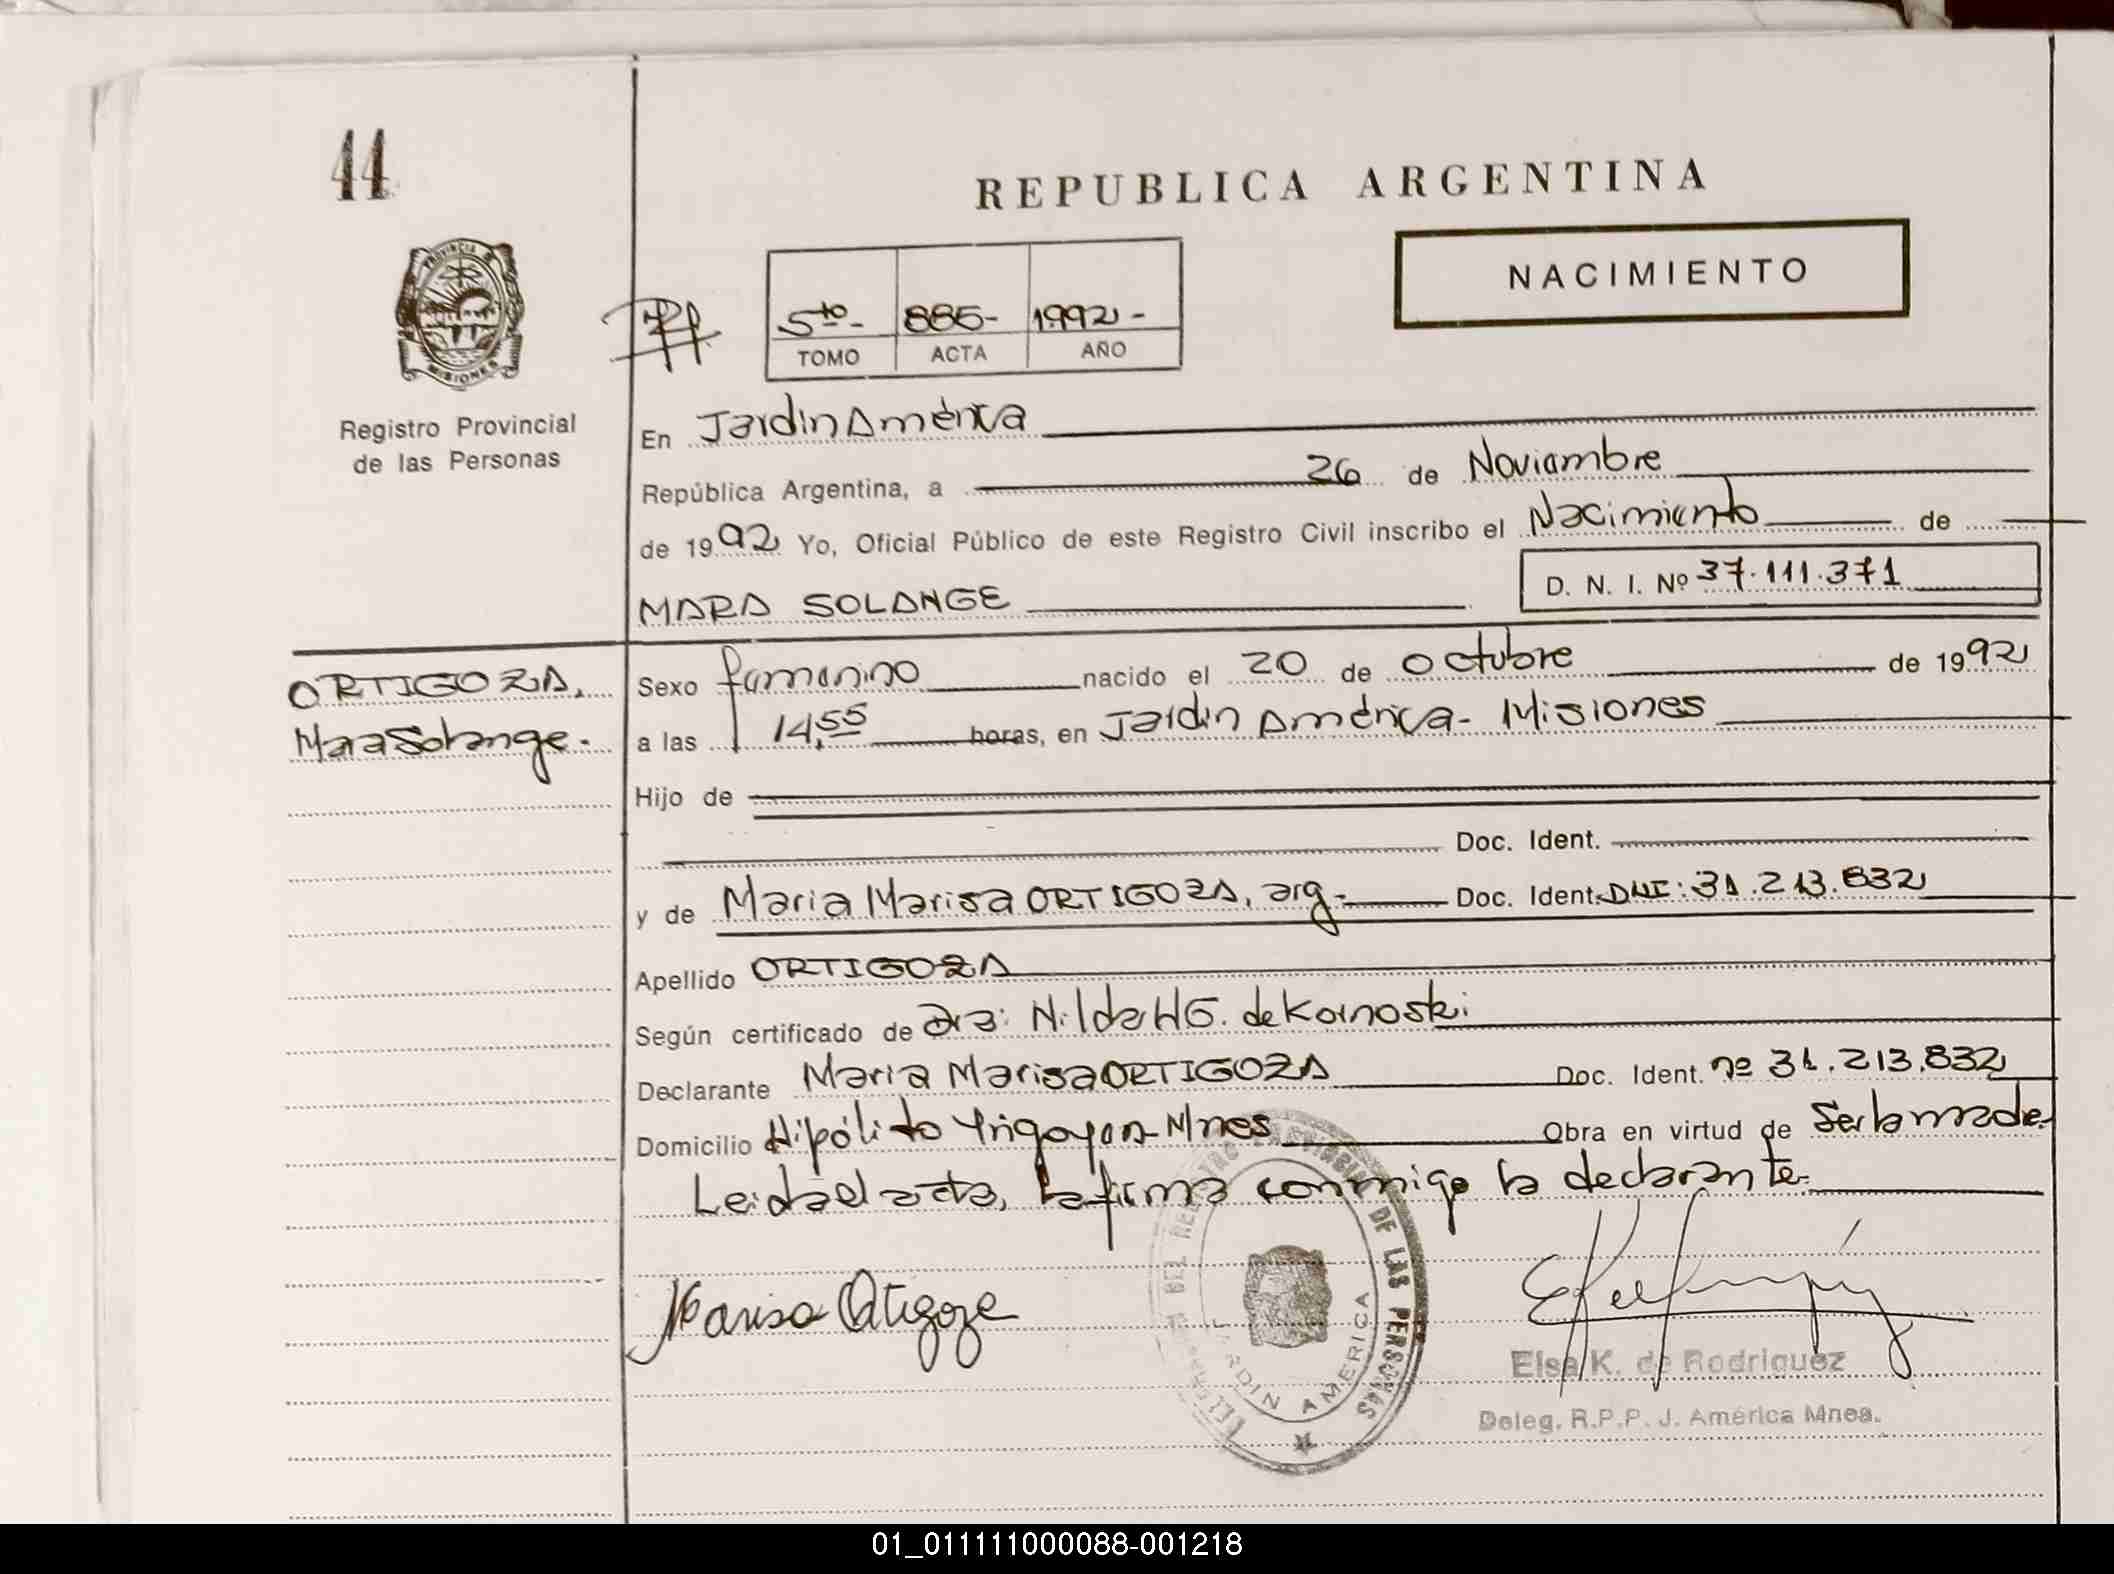 44
REPUBLICA ARGENTINA
NACIMIENTO
PROVINCIA DE
MISIONES
5to- 885- 1992-
TOMO ACTA AÑO
Registro Provincial
de las Personas
En Jardin América
República Argentina, a 26 de Noviembre
de 1992 Yo, Oficial Público de este Registro Civil inscribo el Nacimiento de
MARA SOLANGE D. N. I. Nº 37.111.371
ORTIGOZA,
Mara Solange.-
Sexo femenino nacido el 20 de octubre de 1992
a las 14,55 horas, en Jardin América- Misiones
Hijo de
Doc. Ident.
y de Maria Marisa ORTIGOZA, arg.- Doc. Ident. DNI: 31.213.832
Apellido ORTIGOZA
Según certificado de Dra: Nilda HG. de Kornoski
Declarante Maria Marisa ORTIGOZA Doc. Ident. nº 31.213.832
Domicilio Hipólito Yrigoyen- Mnes Obra en virtud de Ser la madre-
Leida el acta, la firma conmigo la declarante-
Marisa Ortigoza
DELEGACION DEL REGISTRO PROVINCIAL DE LAS PERSONAS
JARDIN AMERICA
Elsa K. de Rodriguez
Deleg. R.P.P. J. América Mnes.
01_011111000088-001218